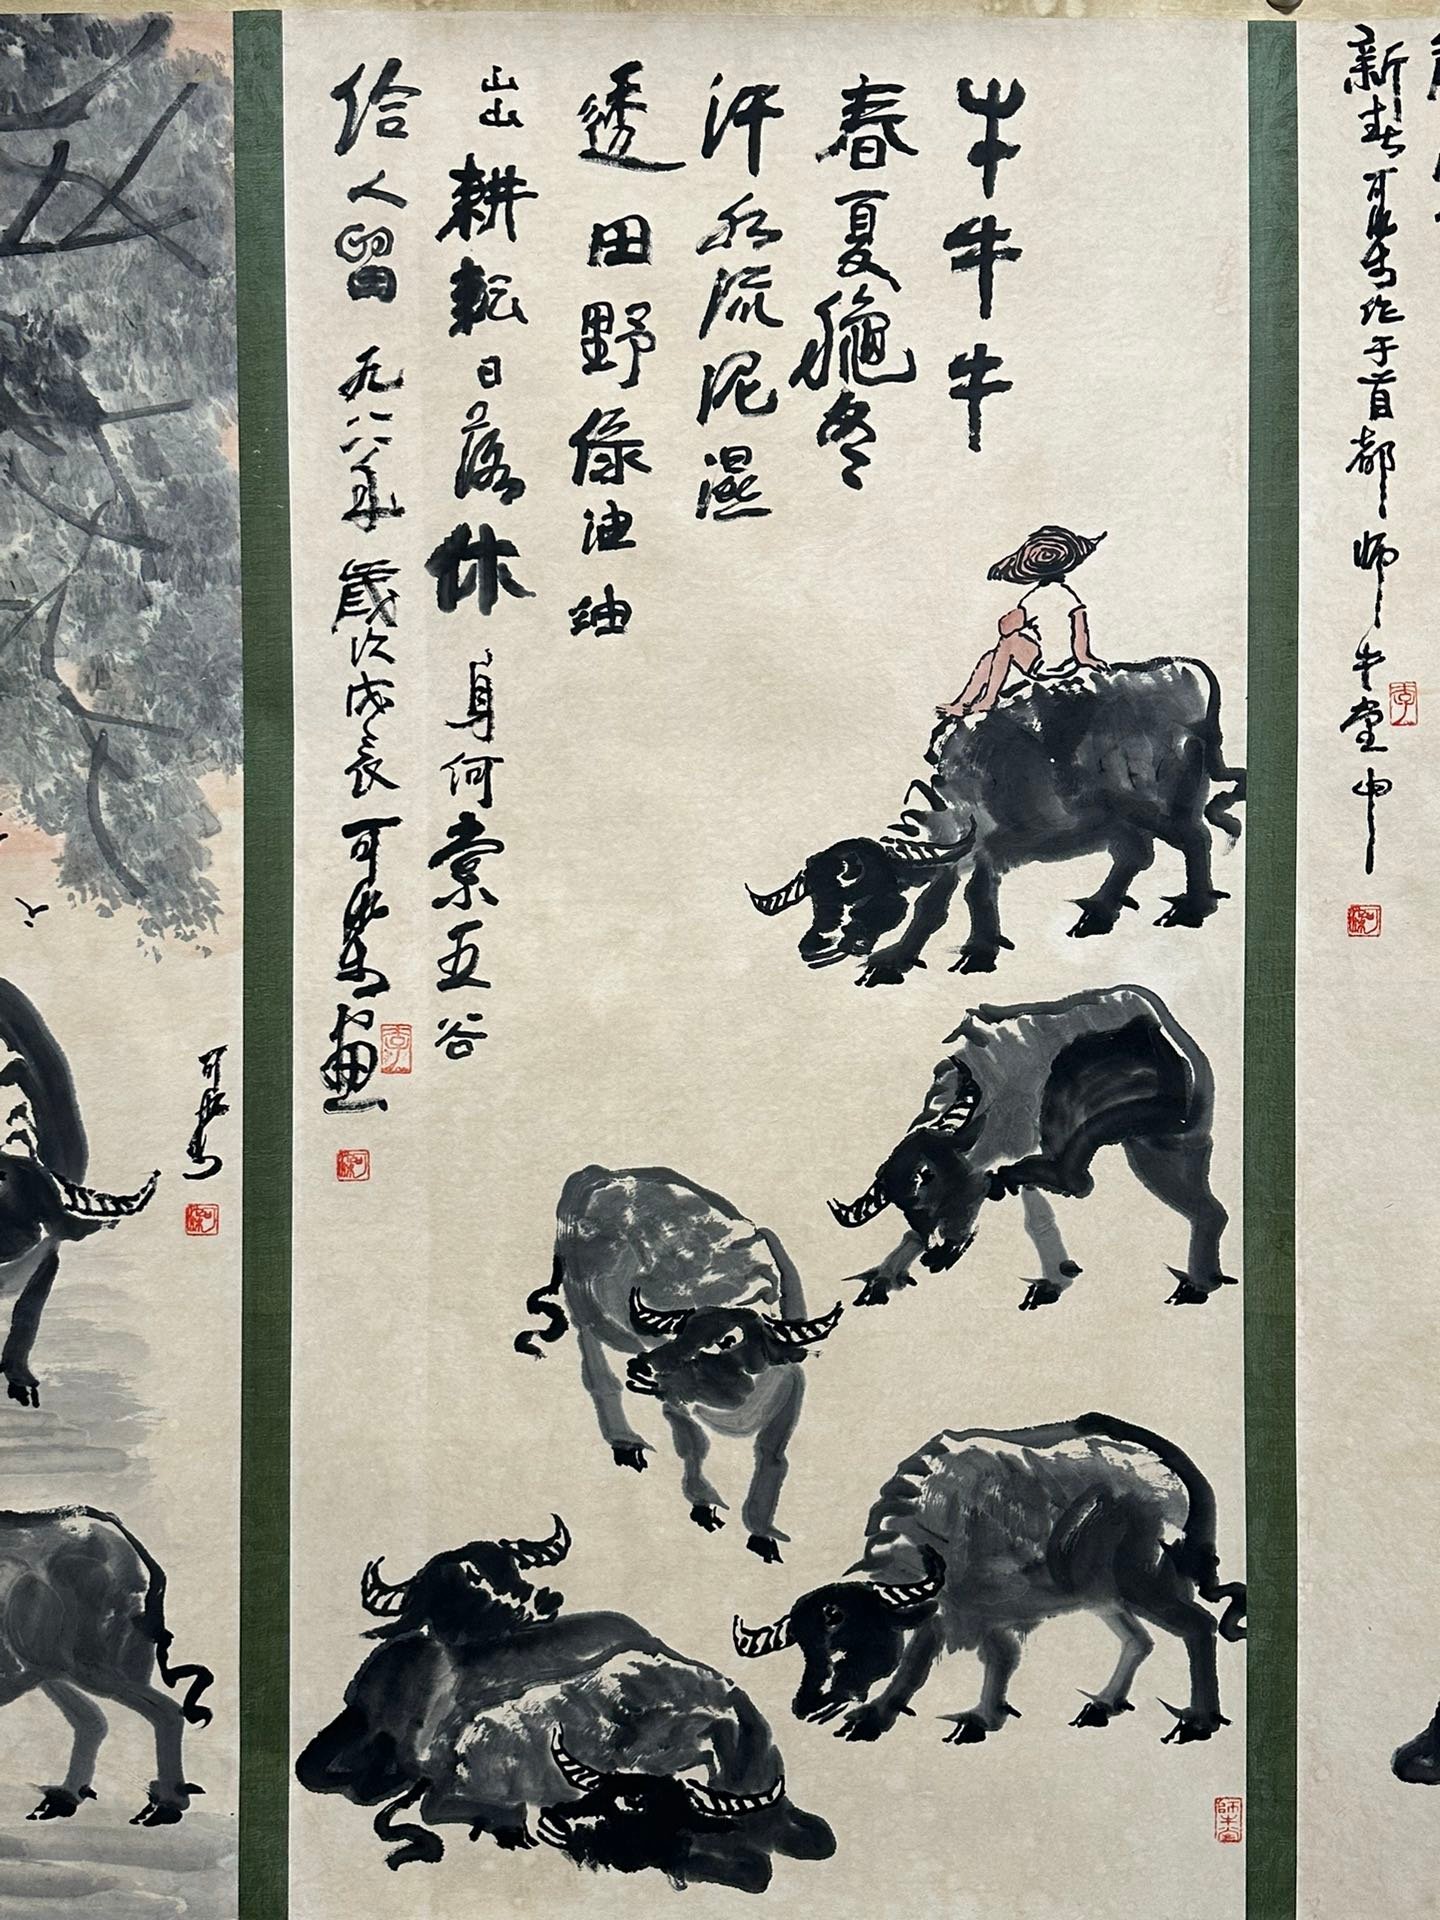 新春可染作于首都师牛堂中
牛牛牛
春夏秋冬
汗水流泥湿
透田野绿油油
出出耕耘日落休身何棠五谷
给人留一九八八年岁次戊辰可染画
可染
師牛堂